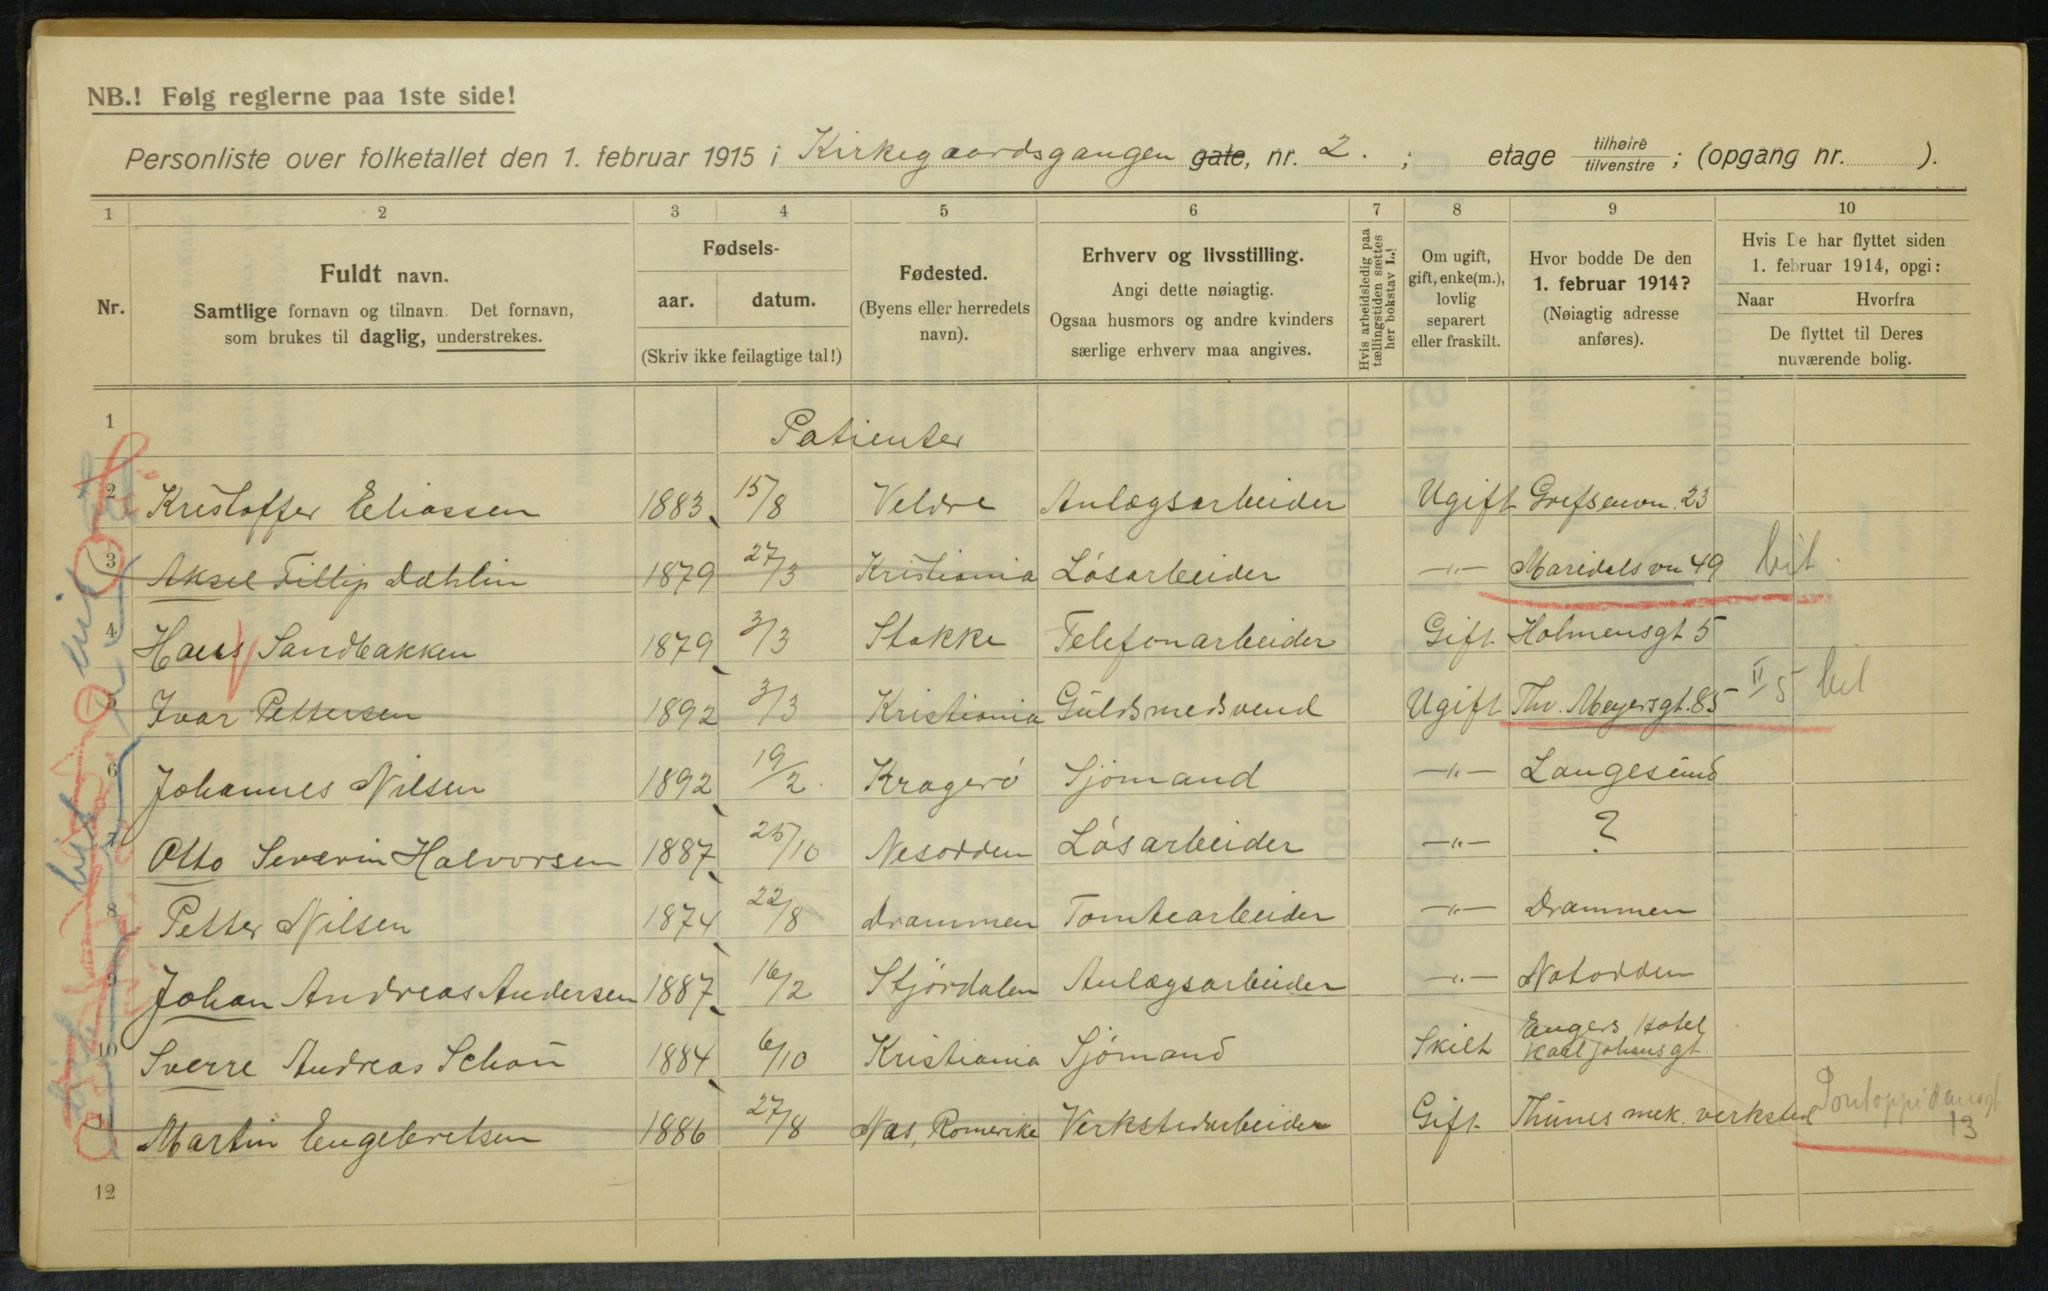 NB.! Følg reglerne paa 1ste side!
Personliste over folketallet den 1. februar 1915 i Kirkegaardsgangen gate, nr. 2. ; etage tilhøire tilvenstre ; (opgang nr. ).
1 2 3 4 5 6 7 8 9 10
Nr.
Fuldt navn.
Samtlige fornavn og tilnavn. Det fornavn,
som brukes til daglig, understrekes.
Fødsels-
aar. datum.
(Skriv ikke feilagtige tal!)
Fødested.
(Byens eller herredets
navn).
Erhverv og livsstilling.
Angi dette nøiagtig.
Ogsaa husmors og andre kvinders
særlige erhverv maa angives.
Hvis arbeidsledig paa
tællingstiden sættes
her bokstav L.!
Om ugift,
gift, enke(m.),
lovlig
separert
eller fraskilt.
Hvor bodde De den
1. februar 1914?
(Nøiagtig adresse
anføres).
Hvis De har flyttet siden
1. februar 1914, opgi:
Naar Hvorfra
De flyttet til Deres
nuværende bolig.
1 Patienter
2 Kristoffer Eliassen 1883 15/8 Veldre Anlægsarbeider Ugift Grefsenvn. 23
3 Aksel Fillip Dæhlin 1879 27/3 Kristiania Løsarbeider -"- Maridalsvn 49 hit.
4 Hans Sandbakken 1879 3/3 Stokke Telefonarbeider Gift Holmensgt 5
5 Ivar Pettersen 1892 3/3 Kristiania Guldsmedsvend Ugift Thv. Meyersgt. 85 II/5 hit
6 Johannes Nilsen 1892 19/2 Kragerö Sjömand -"- Langesund
7 Otto Severin Halvorsen 1887 25/10 Nesodden Løsarbeider -"- ?
8 Petter Nilsen 1874 22/8 Drammen Tomtearbeider -"- Drammen
9 Johan Andreas Andersen 1887 16/2 Stjördalen Anlægsarbeider -"- Notodden
10 Sverre Andreas Schou 1884 6/10 Kristiania Sjömand Skilt Engers Hotel
Karl Johansgt.
11 Martin Engebretsen 1886 27/8 Nas, Romerike Verkstedarbeider Gift Thunes mek. verksted Pontoppidansgt
13
12